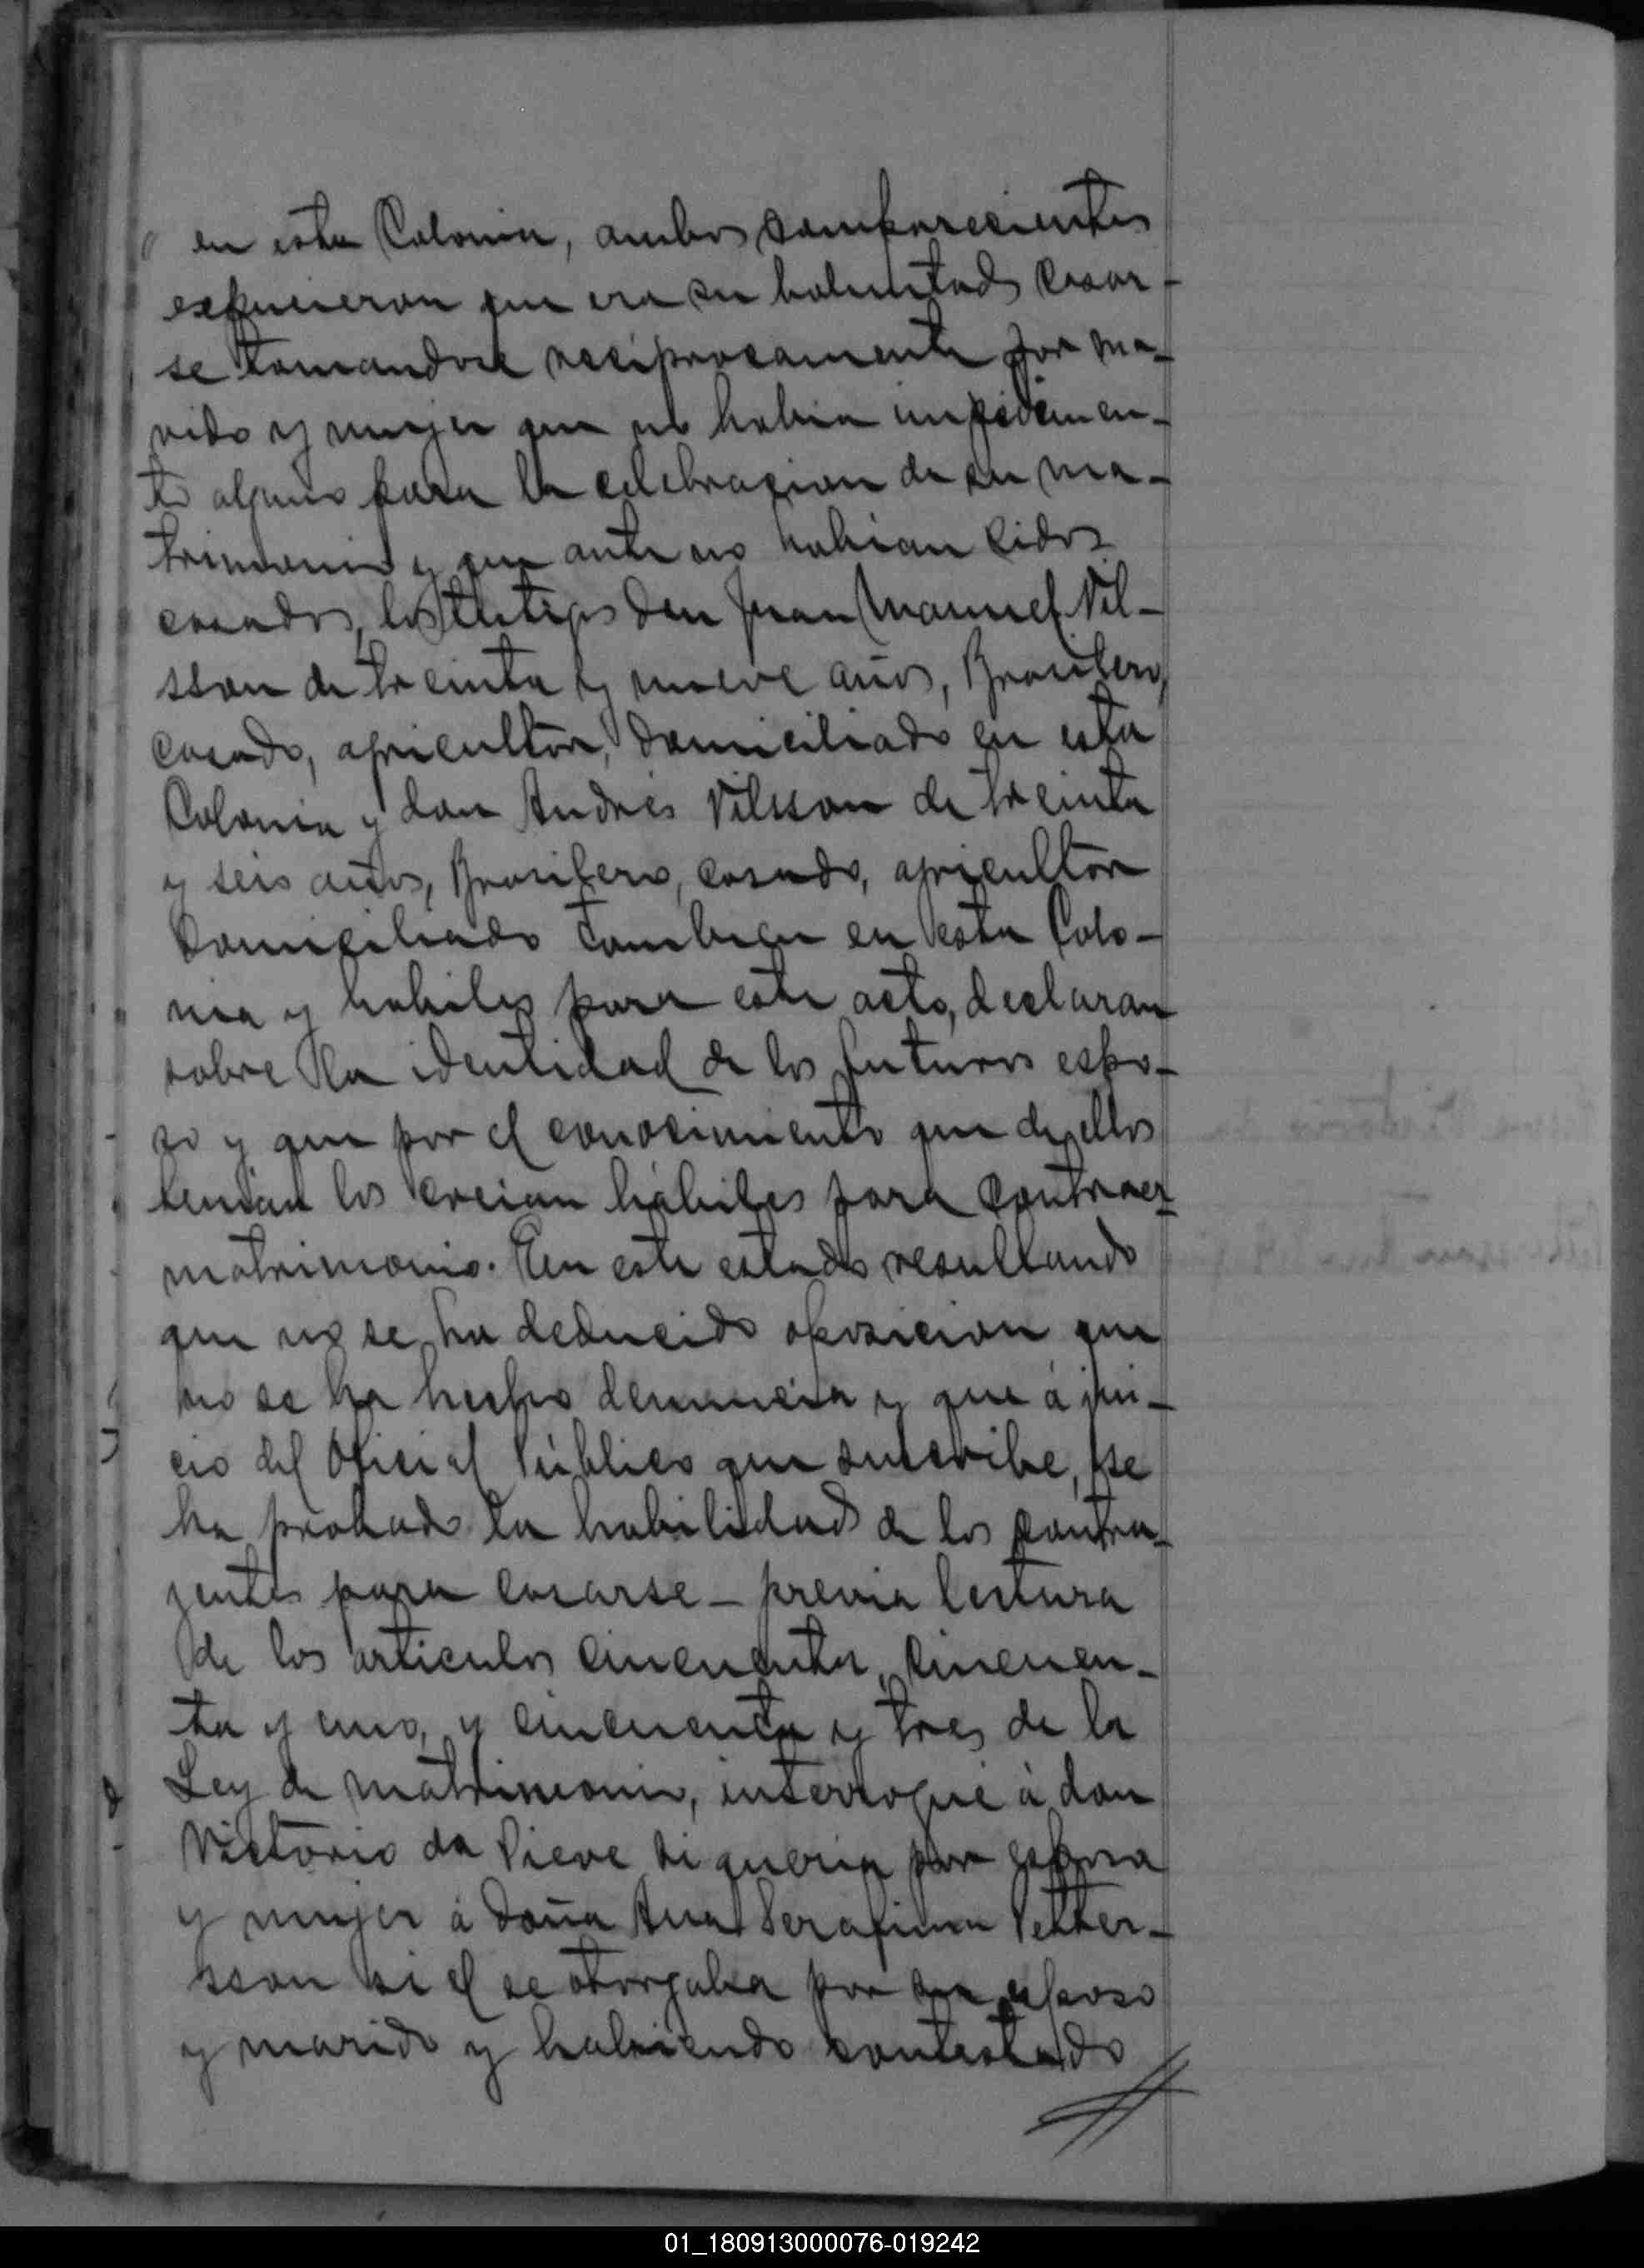 " en esta Colonia, ambos comparecientes
expusieron que era su boluntad casar-
se tomandose reciprocamente por ma-
rido y mujer que no habia impedimen-
to alguno para la celebracion de su ma-
trimonio y que ante no habian sidos
casados, los testigos don Juan Manuel Vil-
sson de treinta y nueve años, Brasilero,
casado, agricultor, domiciliado en esta
Colonia y don Andrés Vilsson de treinta
y seis años, Brasilero, casado, agricultor
domiciliado tambien en esta Colo-
nia y habiles para este acto, declaran
sobre la identidad de los futuros espo-
so y que por el conocimiento que de ellos
tenian los creian hábiles para contraer
matrimonio. En este estado resultando
que no se ha deducido oposicion que
no se ha hecho denuncia y que á jui-
cio del Oficial Público que suscribe, se
ha probado la habilidad de los contra-
yentes para casarse - previa lectura
de los articulos cincuenta, cincuen-
ta y uno, y cincuenta y tres de la
Ley de matrimonio, interrogué á don
Victorio da Pieve si queria por esposa
y mujer á doña Ana Serafina Petter-
sson si el se otorgaba por su esposo
y marido y habiendo contestado
01_180913000076-019242